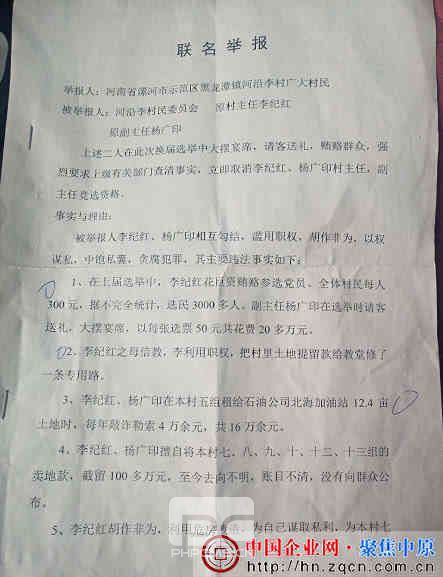 联名举报
举报人：河南省漯河市示范区黑龙潭镇河沿李村广大村民
被举报人：河沿李村民委员会 原村主任李纪红
原副主任杨广印
上述二人在此次换届选举中大摆宴席，请客送礼，贿赂群众，强
烈要求上级有关部门查清事实，立即取消李纪红、杨广印村主任、副
主任竞选资格。
事实与理由：
被举报人李纪红、杨广印相互勾结，滥用职权，胡作非为，以权
谋私，中饱私囊，贪腐犯罪，其主要违法事实如下：
1、在上届选举中，李纪红花巨资贿赂参选党员、全体村民每人
300元，据不完全统计，选民3000多人。副主任杨广印在选举时请客
送礼，大摆宴席，以每张选票50元共花费20多万元。
2、李纪红之母信教，李利用职权，把村里土地提留款给教堂修了
一条专用路。
3、李纪红、杨广印在本村五组租给石油公司北海加油站12.4亩
土地时，每年敲诈勒索4万余元，共16万余元。
4、李纪红、杨广印擅自将本村七、八、九、十、十二、十三组的
卖地款，截留100多万元，至今去向不明，账目不清，没有向群众公
布。
5、李纪红胡作非为，利用 为自己谋取私利，为本村七
中国企业网·聚焦中原
http://hn.zqcn.com.cn